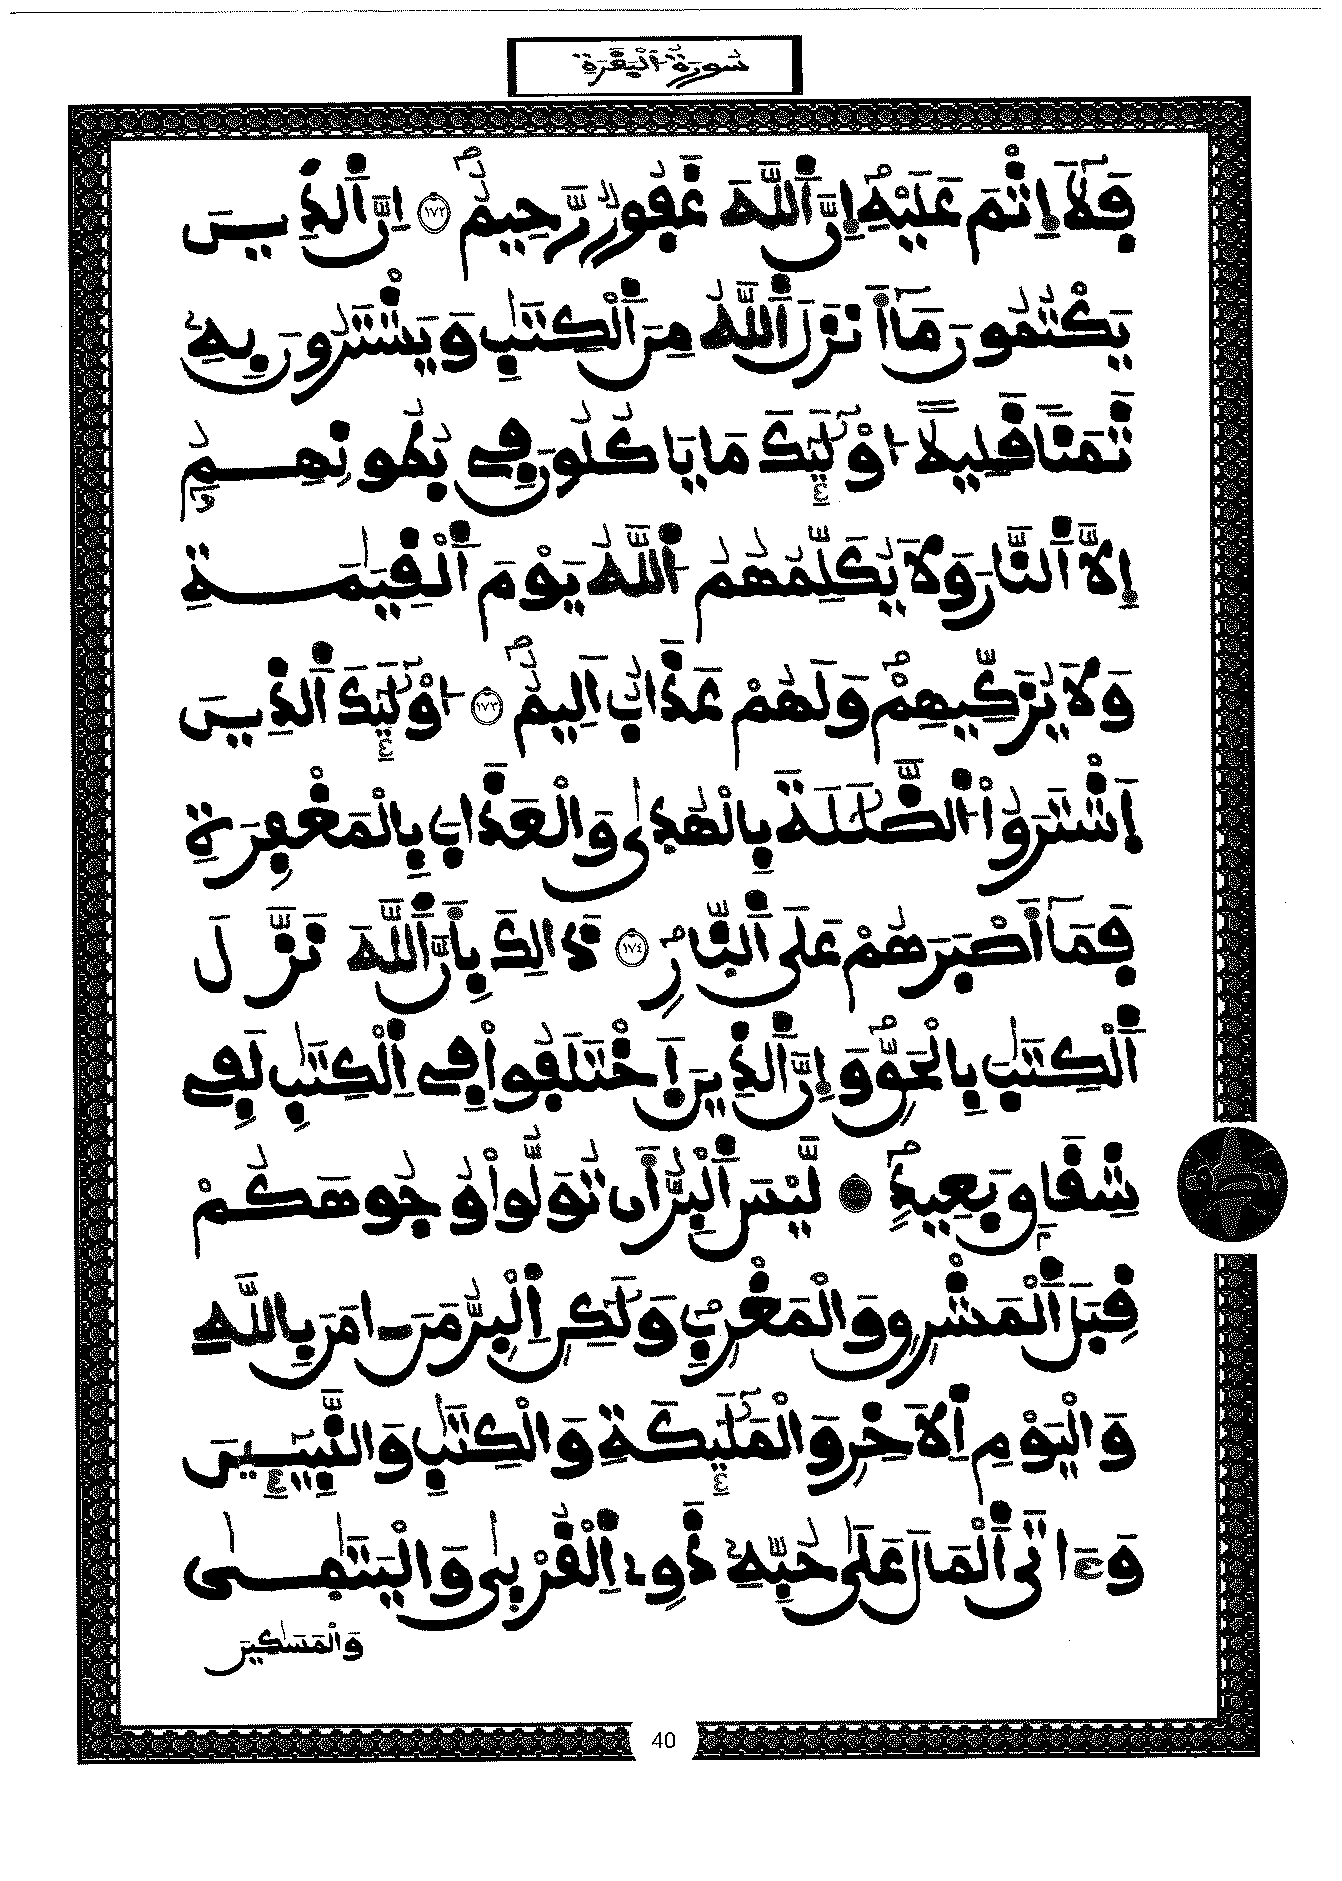 سُورَةُ الْبَقَرَةِ
فَلَآ إِثْمَ عَلَيْهِ إِنَّ اَللَّهَ غَفُورٌ رَّحِيمٌ ١٧٢ إِنَّ اَلذِينَ
يَكْتُمُونَ مَآ أَنزَلَ اَللَّهُ مِنَ اَلْكِتَٰبِ وَيَشْتَرُونَ بِهِۦ
ثَمَناً قَلِيلًا ا۟وْلَٰٓئِكَ مَا يَاكُلُونَ فِے بُطُونِهِمُۥٓ
إِلَّا اَلنَّارَ وَلَا يُكَلِّمُهُمُ اُللَّهُ يَوْمَ اَلْقِيَٰمَةِ
وَلَا يُزَكِّيهِمْ وَلَهُمْ عَذَابٌ اَلِيمٌ ١٧٣ ا۟وْلَٰٓئِكَ اَلذِينَ
اَشْتَرَوُا۟ اُلضَّلَٰلَةَ بِالْهُدَىٰ وَالْعَذَابَ بِالْمَغْفِرَةِ
فَمَآ أَصْبَرَهُمْ عَلَى اَلنَّارِ ١٧٤ ذَالِكَ بِأَنَّ اَللَّهَ نَزَّلَ
اَلْكِتَٰبَ بِالْحَقِّ وَإِنَّ اَلذِينَ اَخْتَلَفُواْ فِے اِلْكِتَٰبِ لَفِے
شِقَاقِۢ بَعِيدٍ لَّيْسَ اَلْبِرُّ أَن تُوَلُّواْ وُجُوهَكُمْ
قِبَلَ اَلْمَشْرِقِ وَالْمَغْرِبِ وَلَٰكِنِ اِلْبِرُّ مَنَ ـ امَنَ بِاللَّهِ
وَالْيَوْمِ اِلَاخِرِ وَالْمَلَٰٓئِكَةِ وَالْكِتَٰبِ وَالنَّبِيٓـِٕينَ
وَءَاتَى اَلْمَالَ عَلَىٰ حُبِّهِۦ ذَوِے اِلْقُرْبَىٰ وَالْيَتَٰمَىٰ
وَالْمَسَٰكِينَ
40